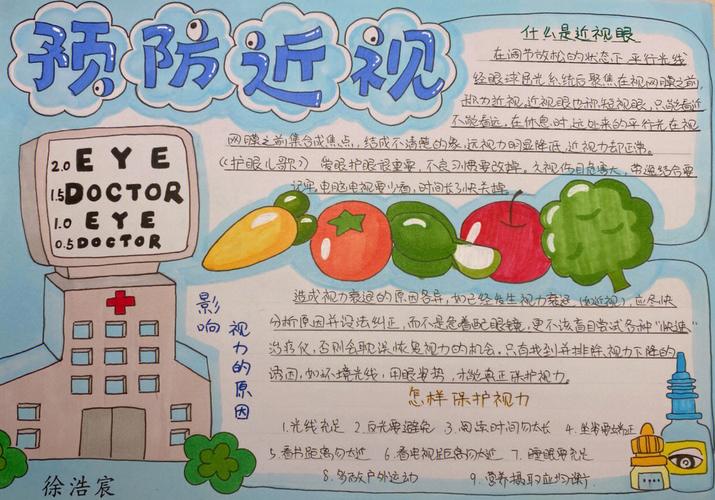 预防近视
2.0 EYE
1.5 DOCTOR
1.0 EYE
0.5 DOCTOR
什么是近视眼
在调节放松的状态下,平行光线
经眼球屈光系统后聚焦在视网膜之前,
称为近视,近视眼也称短视眼,只能看近
不能看远,在休息时,远处来的平行光在视
网膜之前集合成焦点,结成不清楚的象,远视力明显降低,近视力却正常。
《护眼儿歌》爱眼护眼很重要,不良习惯要改掉。久视伤目危害大,劳逸结合要
记牢,电脑电视要少看,时间长了快去掉
影响
视力的原因
造成视力衰退的原因各异,如已经发生视力衰退(如近视),应尽快
分析原因并设法纠正,而不是急着配眼镜,更不该盲目尝试各种"快速"
治疗仪,否则会耽误恢复视力的机会。只有找到并排除视力下降的
诱因,如环境光线,用眼姿势,才能真正保护视力。
怎样保护视力
1.光线充足 2.反光要避免 3.阅读时间勿太长 4.坐姿要端正
5.看书距离勿太近 6.看电视距离勿太近 7.睡眠要充足
8.多做户外运动 9.营养摄取应均衡
徐浩宸